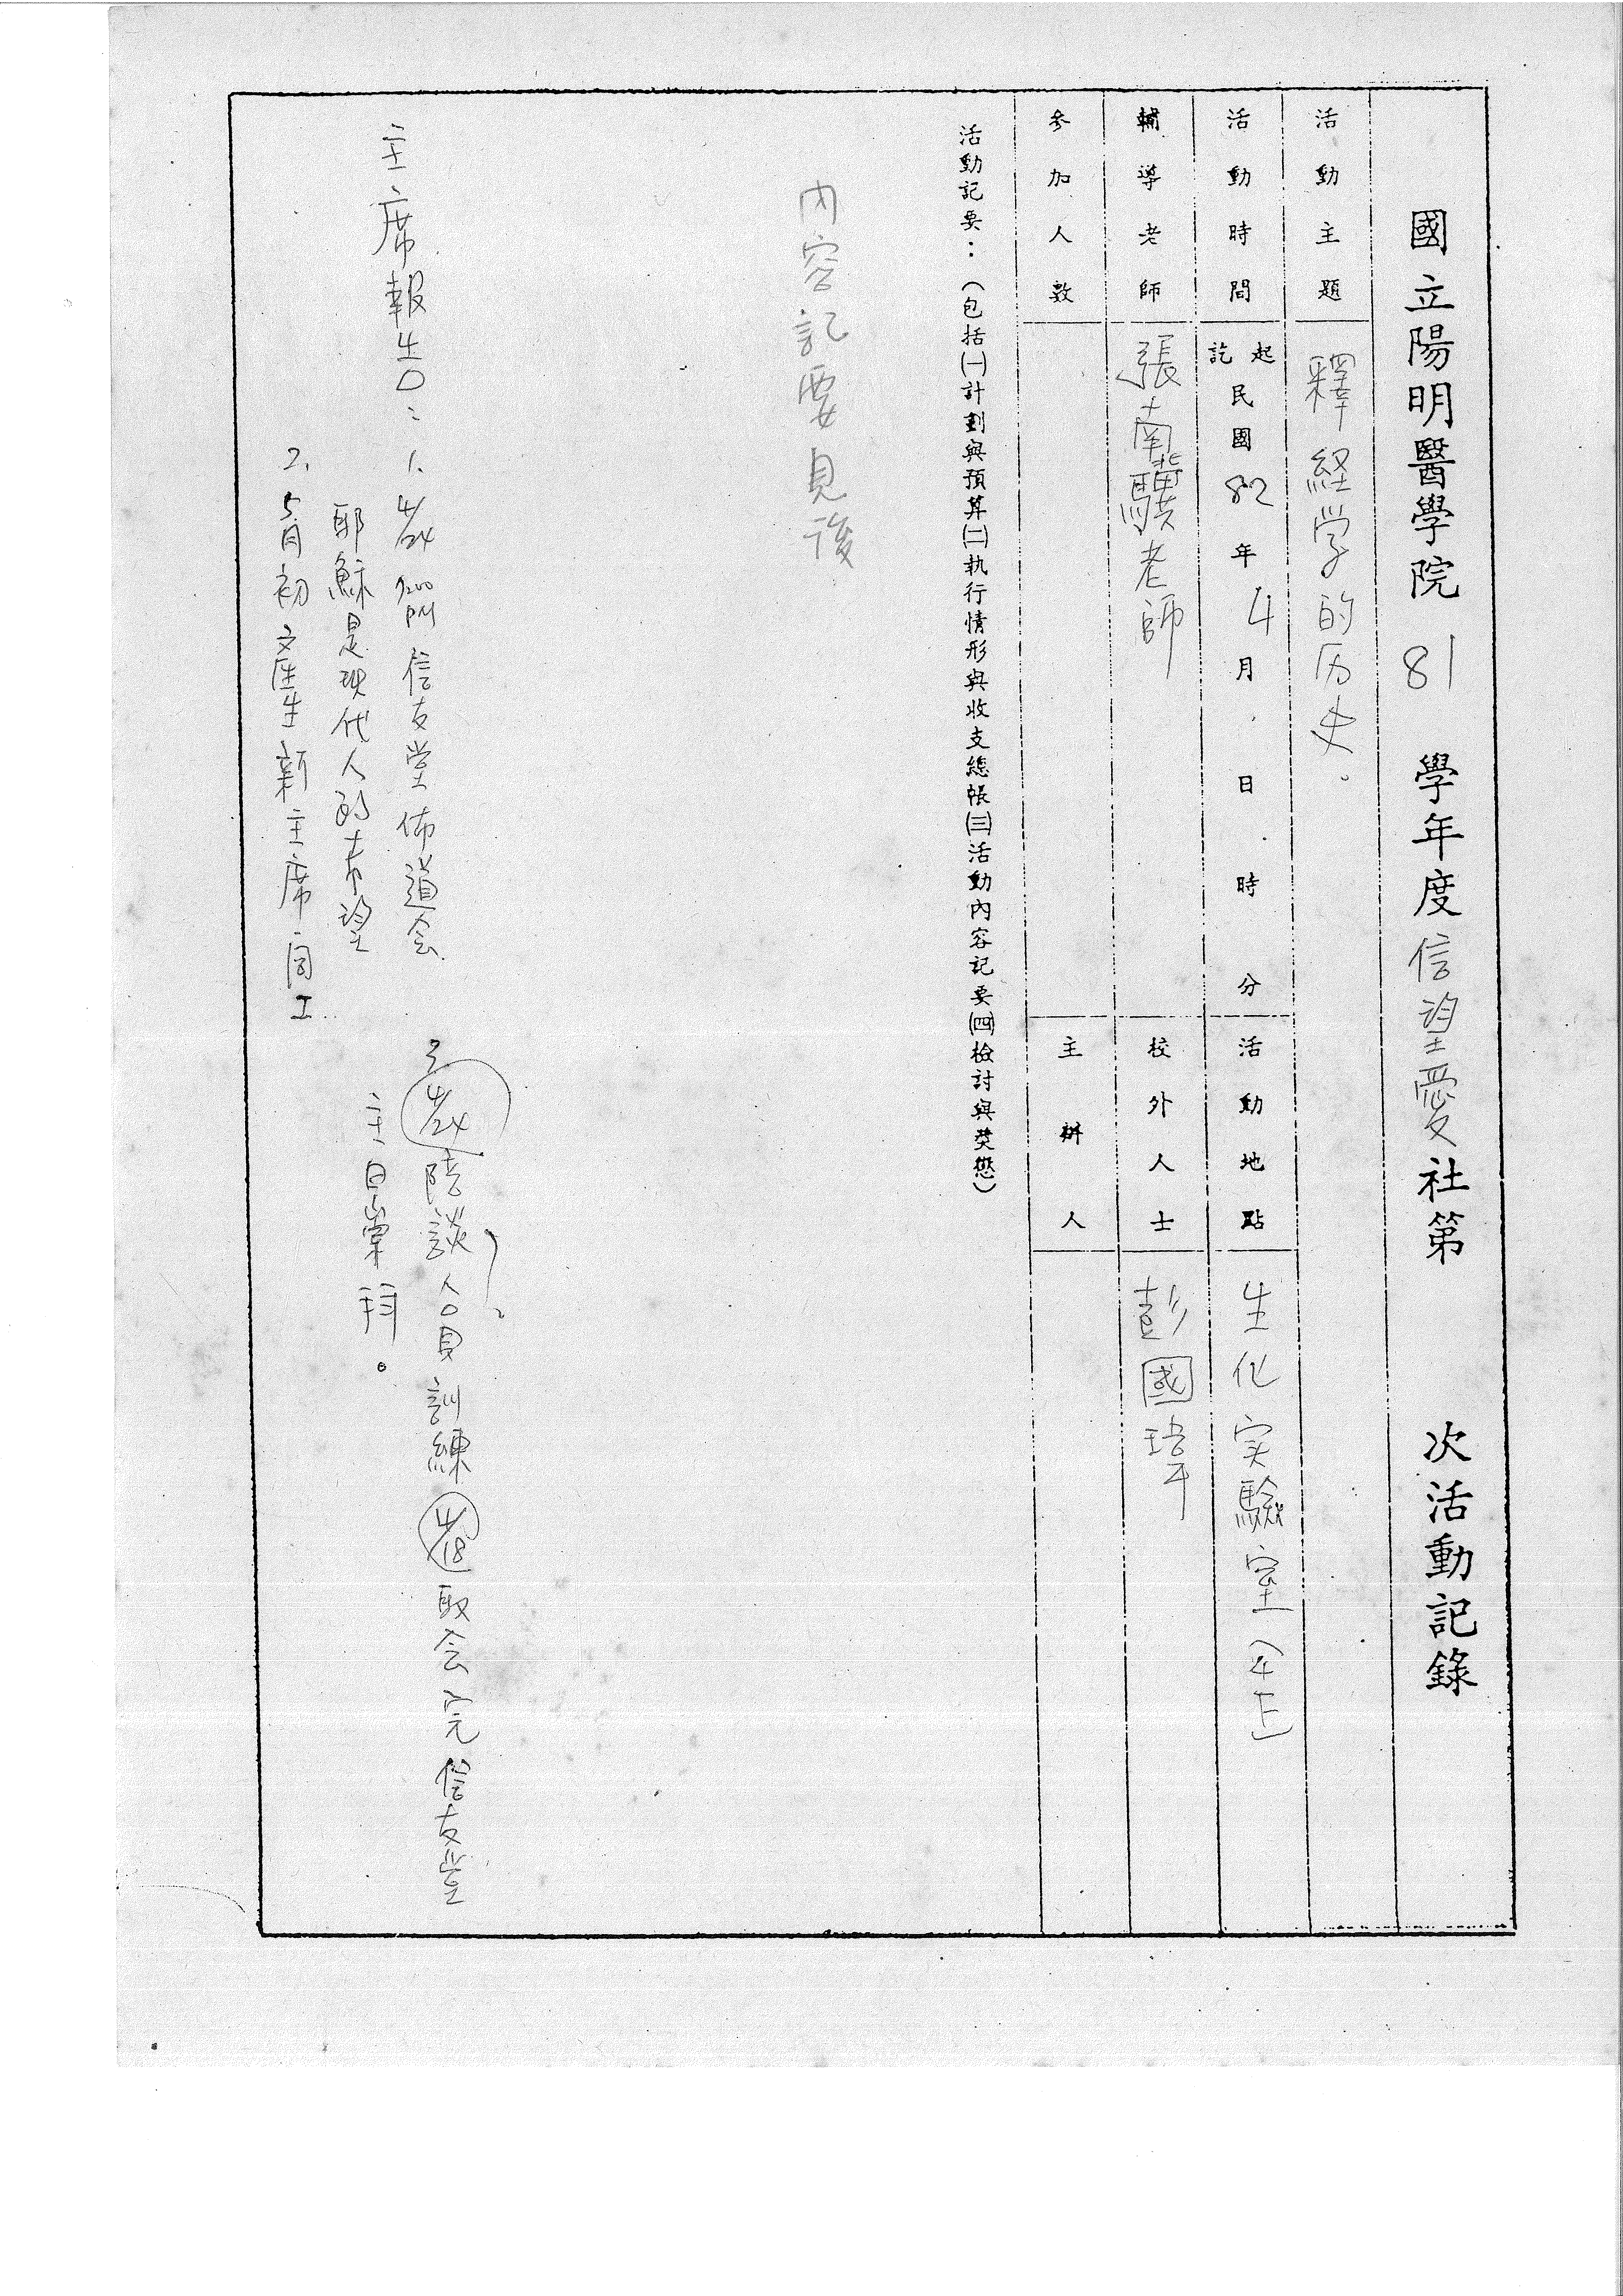 國立陽明醫學院 81 學年度信望愛社第 次活動記錄
活動主題 釋経学的历史。
活動時間 起訖 民國82年4月 日 時 分 活動地點 生化实驗室(4F)
輔導老師 張南驥老師 校外人士 彭國瑋
參加人數 主辦人
活動記要：（包括㈠計劃與預算㈡執行情形與收支總帳㈢活動內容記要㈣檢討與獎懲）
內容記要見後
主席報告：1. 4/24 7:00 PM 信友堂佈道会
耶穌是現代人的希望
2. 5月初產生新主席同工
3. 4/24 陪談人員訓練 4/18 聚会完信友堂
主日崇拜。